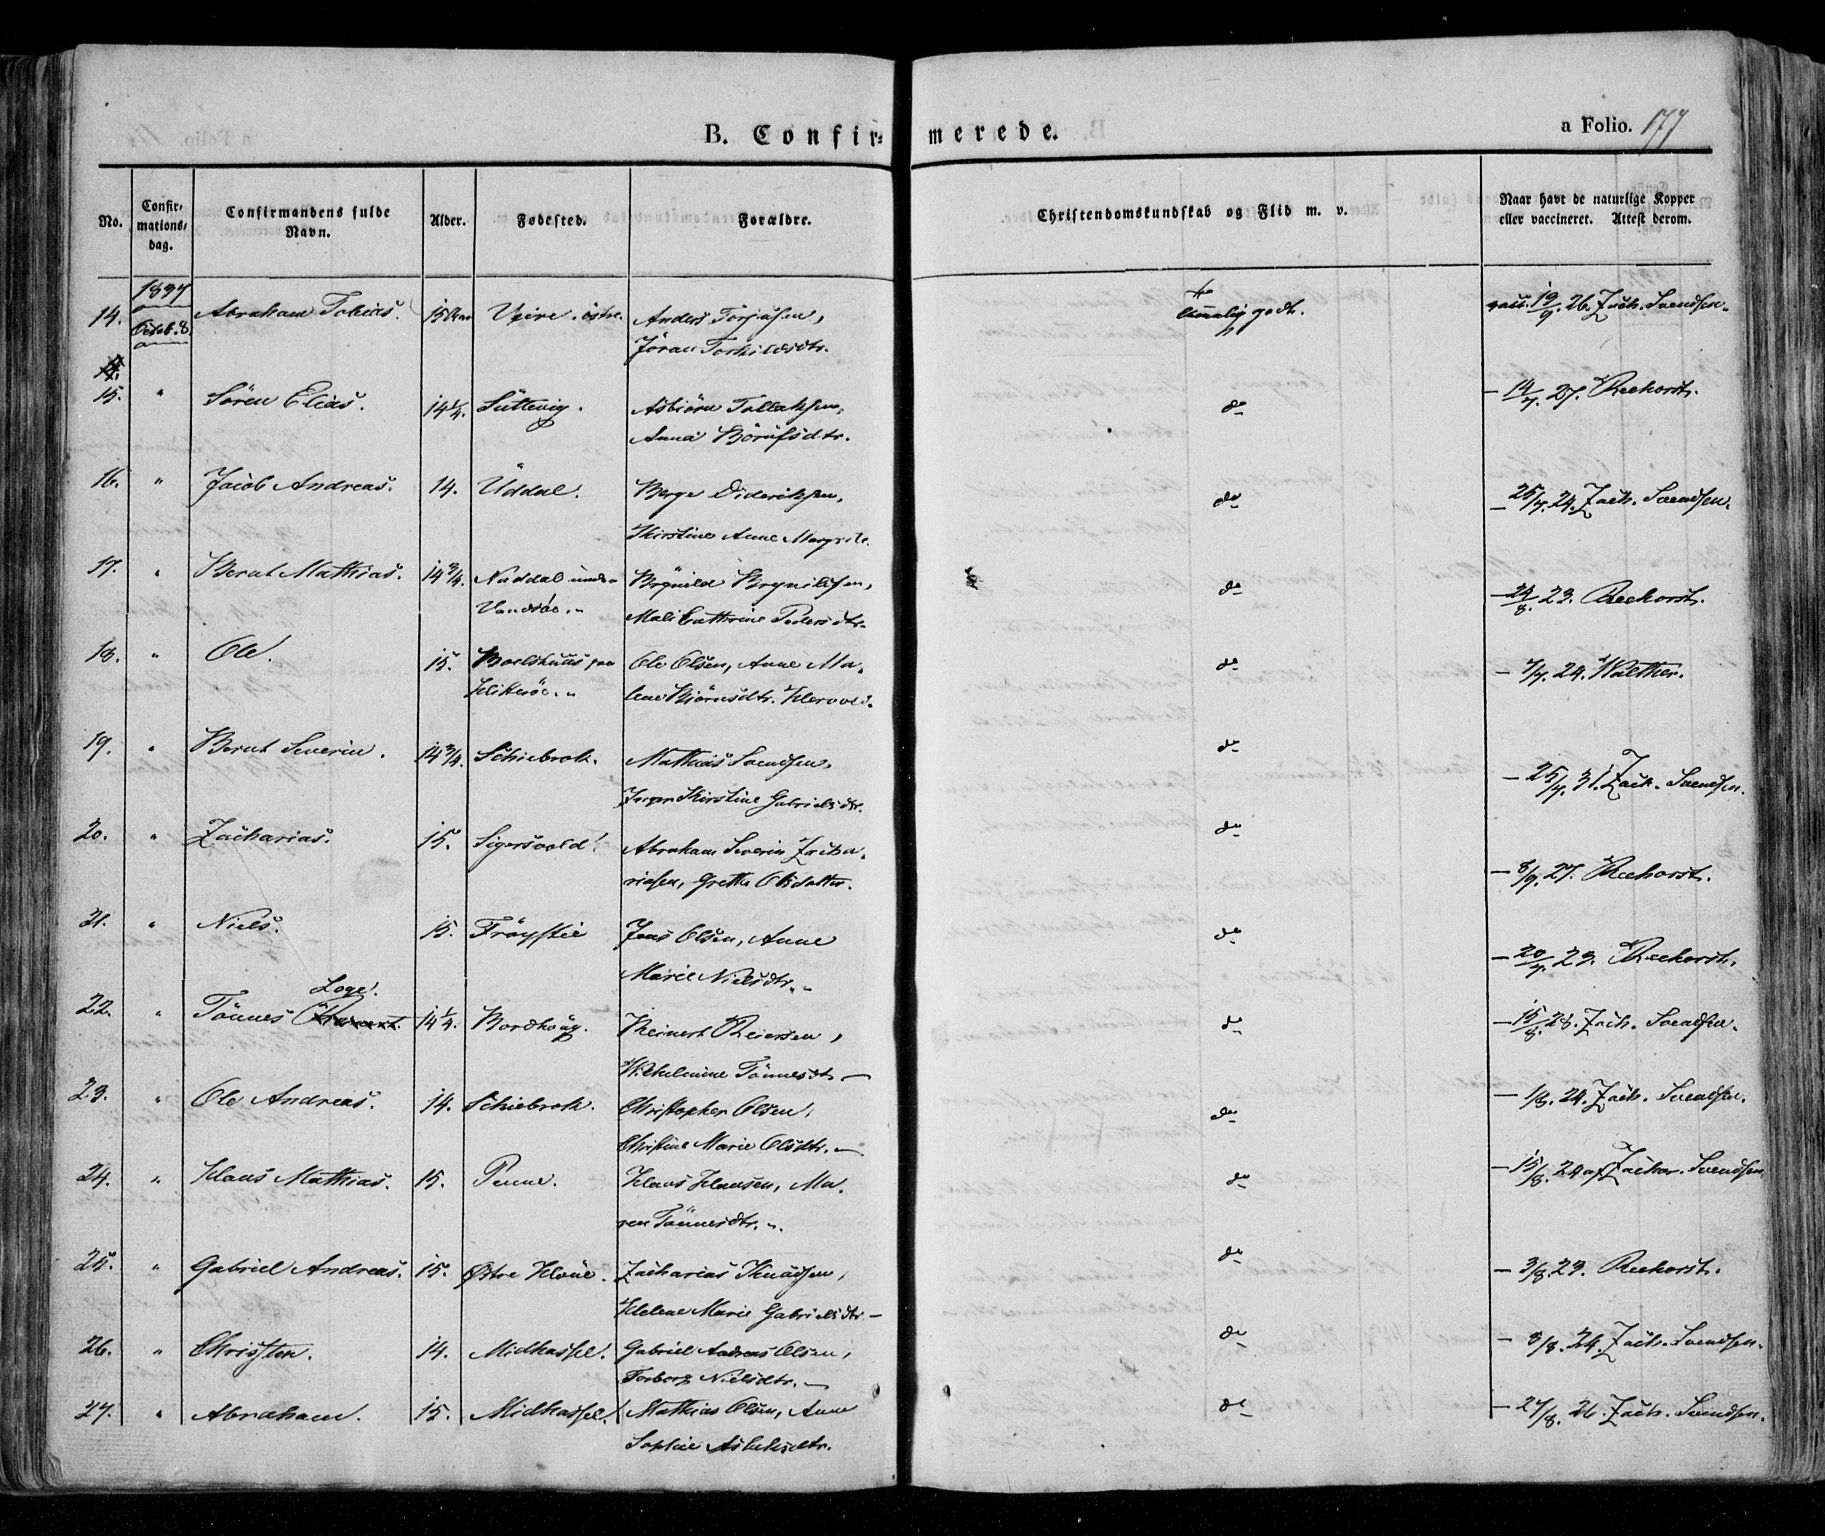 B. Confir- merede. a Folio. 177
No. Confir- mations- dag. Confirmandens fulde Navn. Alder. Fødested. Forældre. Christendomskundskab og Flid m. v. Naar havt de naturlige Kopper eller vaccineret. Attest derom.
1837
14. Octob. 8 Abraham Tobias. 15 Veire østre. Anders Torjusen, temmelig godt. vacc. 19/9. 26. Zach. Svendsen.
Jöran Torkildsdtr.
15. " Sören Elias. 14 1/4. Süllevig. Asbiörn Tollaksen, do - 14/7. 27. Reehorst.
Anna
16. " Jacob Andreas. 14. Uddal. Berge Dideriksen, do - 25/7. 24. Zach. Svendsen.
Kirstine Anne Margrete.
17. " Bernt Mathias. 14 3/4. Naddal under Brynild Brynildsen, do - 24/8. 23. Reehorst.
Mali Cathrine Pedersdtr.
18. " Ole. 15. paa Ole Olsen, Anne Ma- do - 7/7. 24. Walther.
Hitterøe. " lene Bjørnsdtr.
19. " Bernt Severin. 14 3/4. Schiebrok. Mathias Svendsen, do - 25/7. 31. Zach. Svendsen.
Kirstine Gabrielsdtr.
20. " Zacharias. 15. Sigersvold. Abraham Severin Zacha- do - 8/9. 27. Reehorst.
riasen, Grethe Olsdatter.
21. " Niels. 15. Fröystie Jens Olsen, Anne do - 20/7. 23. Reehorst.
Marie Nielsdtr. "
Loge.
22. " Tönnes 14 1/4. Bordhoüg. Reinert Reiersen, do - 15/8. 23. Zach. Svendsen.
Wilhelmine Tönnesdtr. -
23. " Ole Andreas. 14. Schiebrok. Christopher Olsen, do - 1/8. 24. Zach. Svendsen.
Christine Marie Olsdtr. -
24. " Klaus Mathias. 15. Penne. Klaus Klausen, Ma- do - 15/8. 24 af Zachar. Svendsen.
ren Tönnesdtr. "
25. " Gabriel Andreas. 15. Østre Zacharias Knudsen, do - 3/8. 23. Reehorst.
Helene Marie Gabrielsdtr -
26. " Christen. 14. Midhassel. Gabriel Andreas Olsen, do - 3/8. 24. Zach. Svendsen.
Torborg Nielsdtr. -
27. " Abraham. 15. Midhassel. Mathias Olsen, Anne do - 27/8. 26. Zach. Svendsen.
Sophie